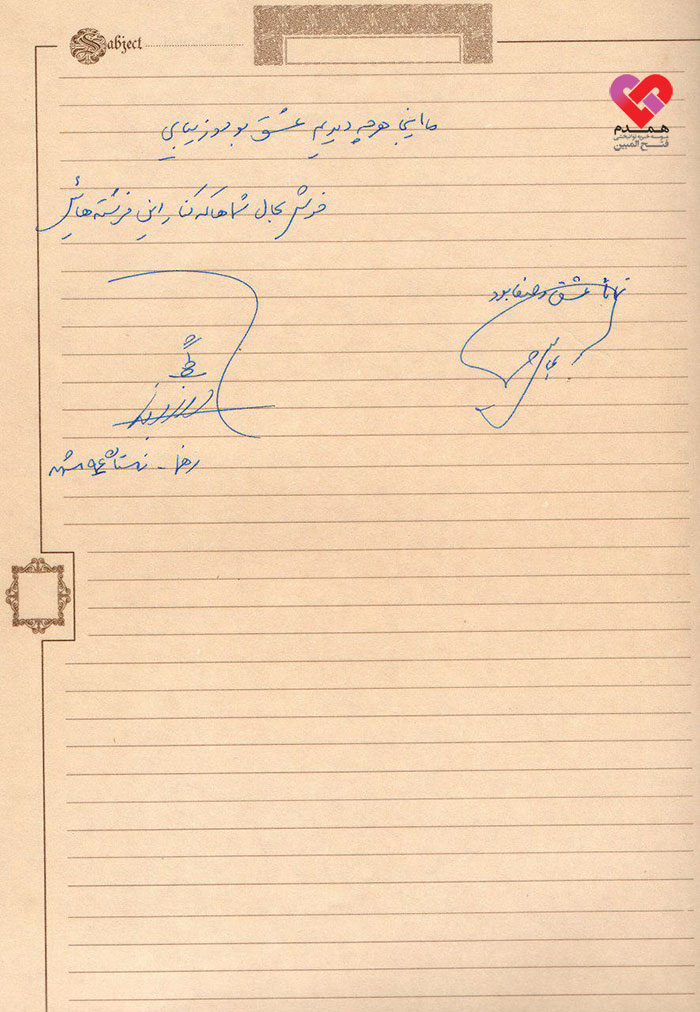 Sabject
همدم
موسسه خیریه توانبخشی
فتح المبین
ما اینجا هر چه دیدیم عشق بود و زیبایی
خوش بحال شماها که کنار این فرشته هایید
تماماً عشق و صفا بود
رضا - زمستان ۹۶ مشهد